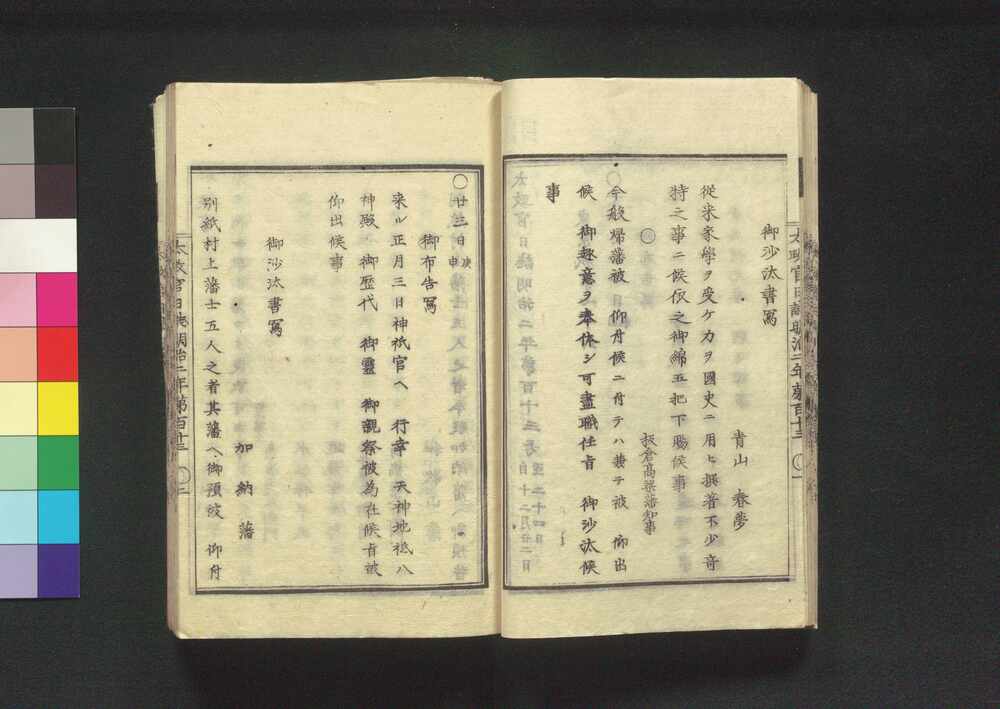 御沙汰書寫
青山　春夢
從来家學ヲ受ケ力ヲ國史ニ用ヒ撰著不少竒
特之事ニ候仍之御綿五把下賜候事
○　板倉高梁藩知事
今般帰藩被　仰付候ニ付テハ兼テ被　仰出
候　御趣意ヲ奉体シ可盡職任旨　御沙汰候
事
太政官日誌明治二年第百十三　○一
○廿三日庚申
御布告寫
来ル正月三日神祇官ヘ　行幸　天神地祇八
神殿　御歴代　御靈　御親祭被為在候旨被
仰出候事
御沙汰書寫
加納藩
別紙村上藩士五人之者其藩ヘ御預被　仰付
太政官日誌明治二年第百十三　○二